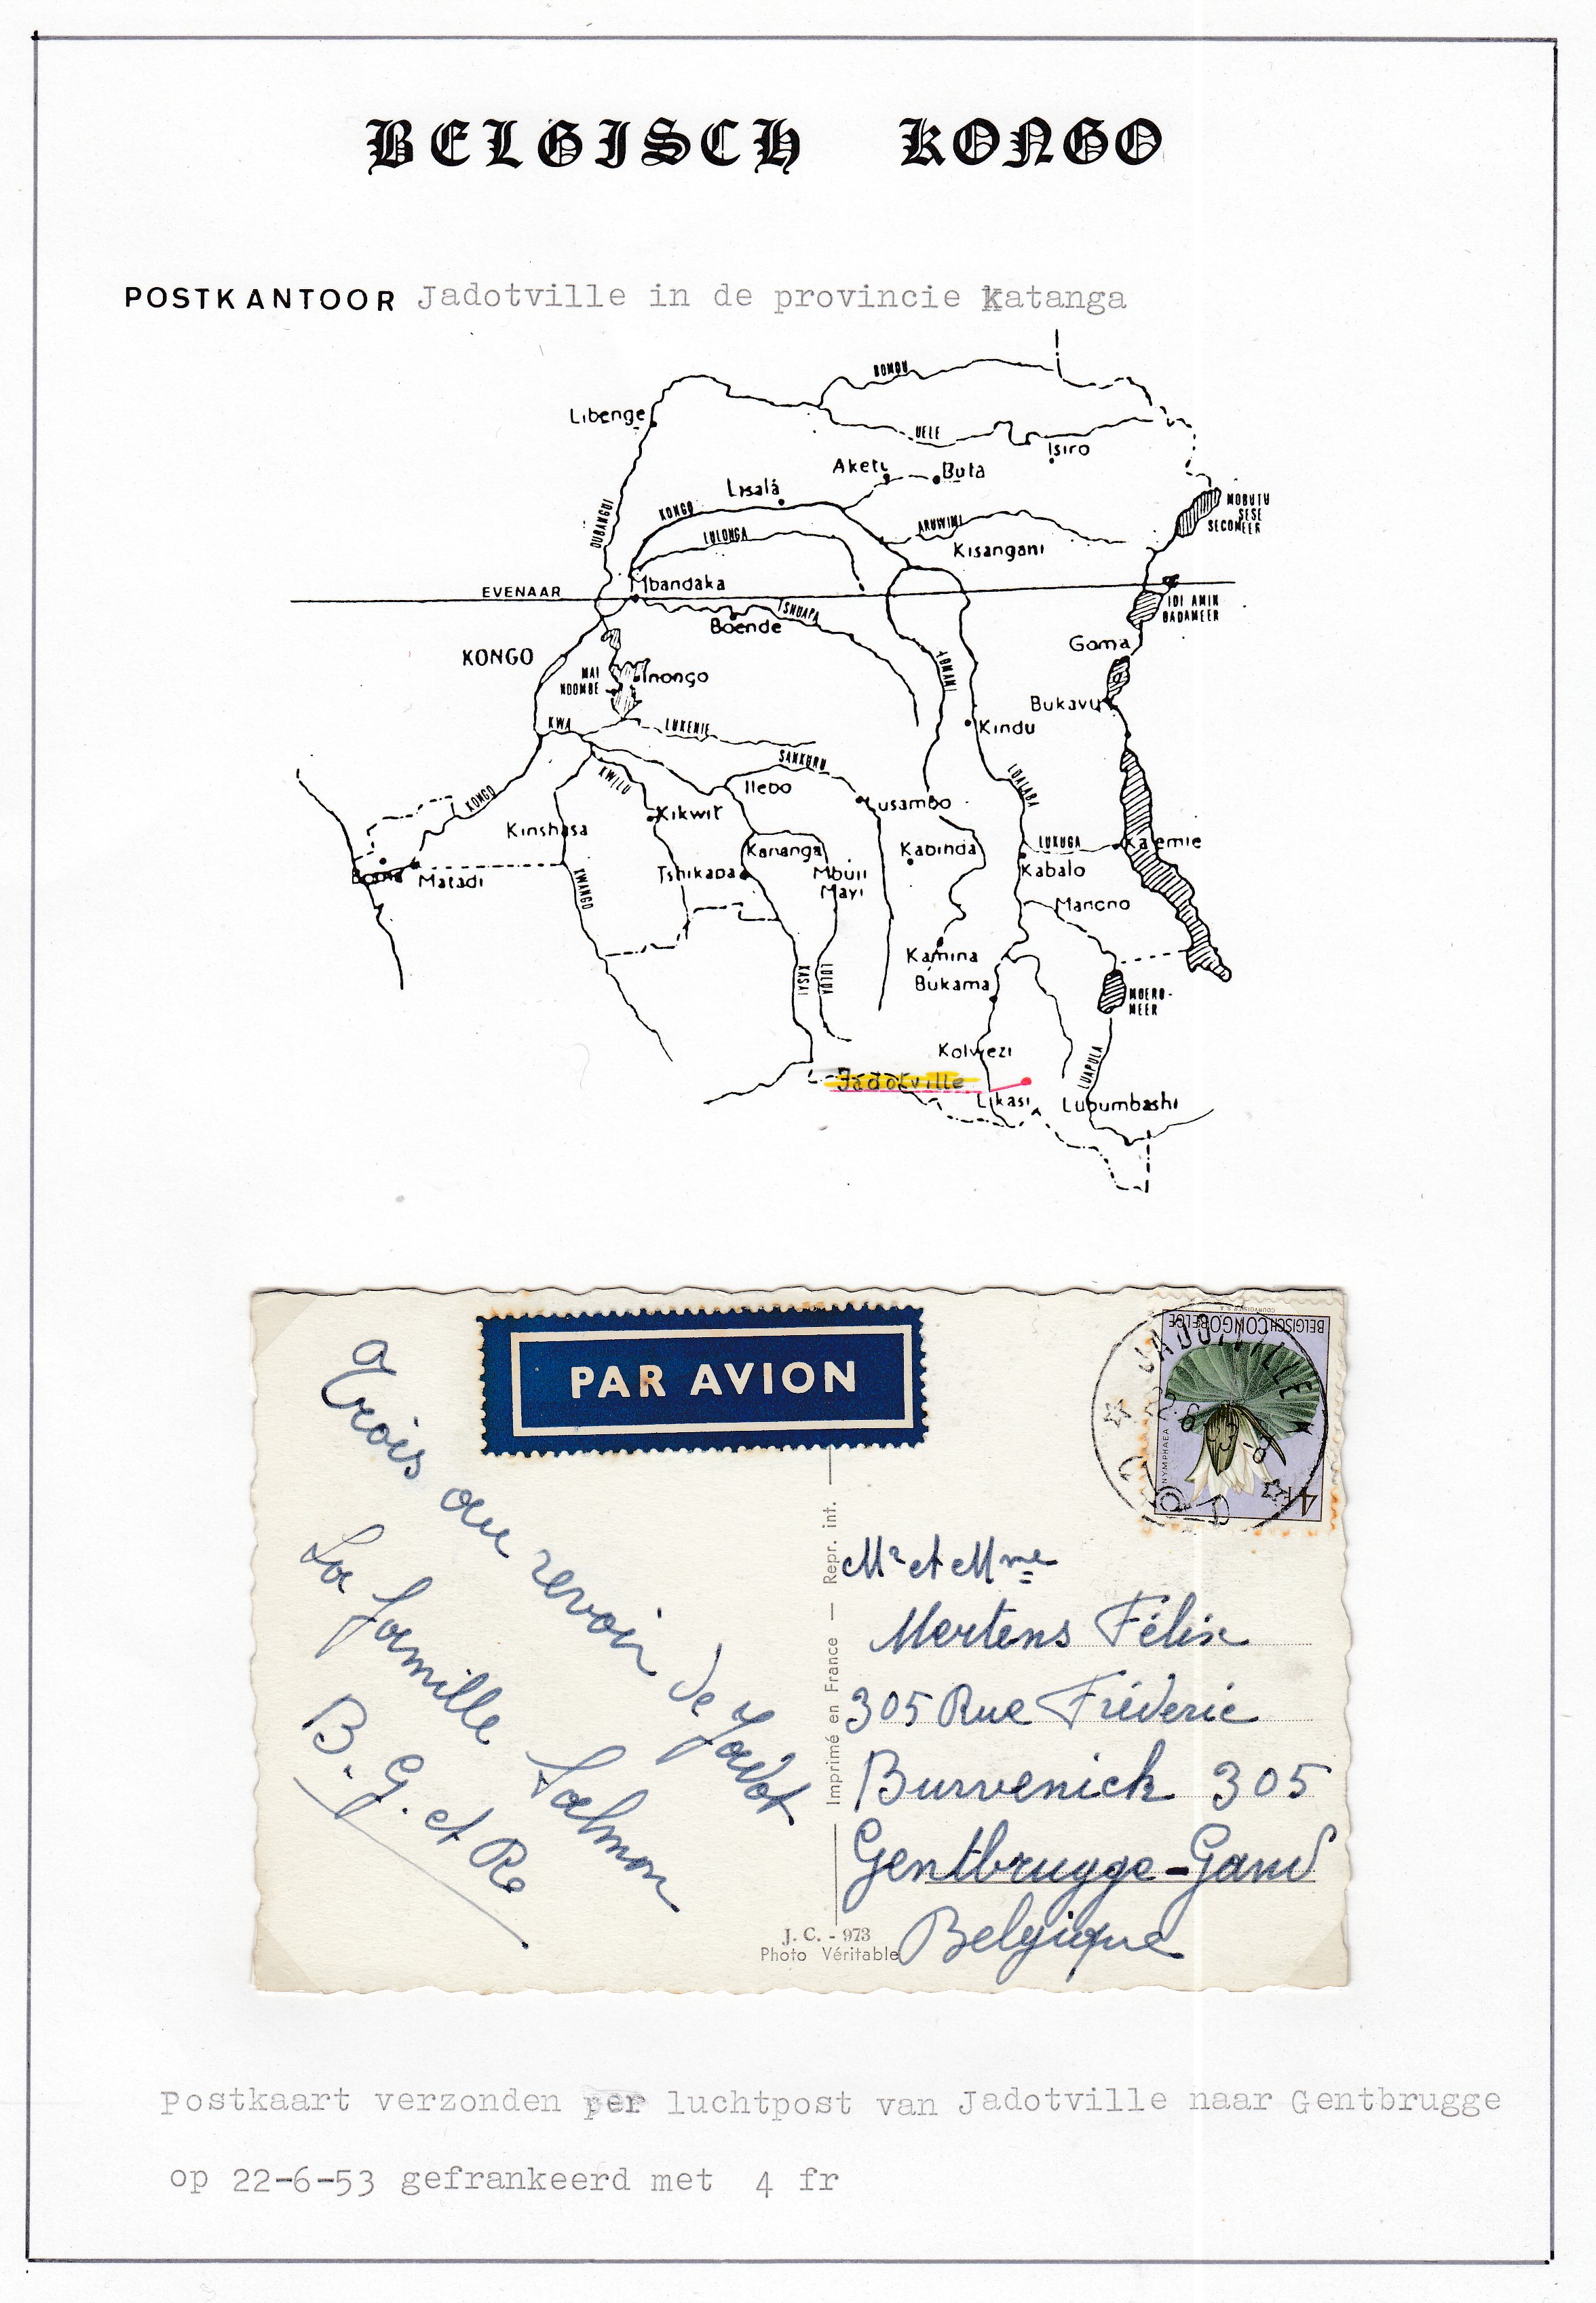 BELGISCH KONGO
POSTKANTOOR Jadotville in de provincie Katanga
BOMOU
Libenge
UELE
Isiro
Aketi
Buta
Lisala
MOBUTU
SESE
SECOMEER
OUBANGUI
KONGO
LULONGA
ARUWIMI
Kisangani
Mbandaka
EVENAAR
IDI AMIN
DADAMEER
TSHUAPA
Boende
Goma
KONGO
LOMAMI
MAI
NDOMBE
Inongo
Bukavu
KWA
LUKENIE
Kindu
SANKURU
KWILU
Ilebo
LUALABA
KONGO
Lusambo
Kikwit
Kinshasa
Kananga
Kabinda
LUKUGA
Kalemie
Boma
Matadi
Tshikapa
Mbuji
Mayi
Kabalo
KWANGO
Manono
Kamina
KASAI
LULUA
Bukama
MOERO-
MEER
Kolwezi
LUAPULA
Jadotville
Likasi
Lubumbashi
PAR AVION
BELGISCH CONGO BELGE
COURVOISIER S.A.
NYMPHAEA
4F
JADOTVILLE
a trois au revoir de Jadot
La famille Salmon
B. G. et Re
Imprimé en France — Repr. int.
J. C. - 973
Photo Véritable
Mr et Mme
Mertens Félix
305 Rue Fréderic
Burvenick 305
Gentbrugge-Gand
Belgique
Postkaart verzonden per luchtpost van Jadotville naar Gentbrugge
op 22-6-53 gefrankeerd met 4 fr